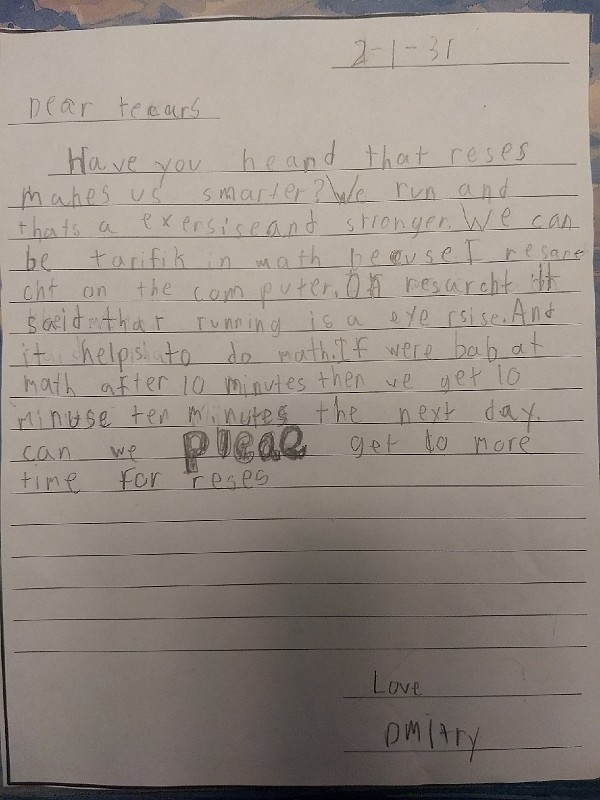 2-1-31
Dear tecars
Have you heand that reses
makes us smarter? We run and
thats a exersise and stronger. We can
be tarifik in math becuse I resare
cht on the computer. On resarcht it
said that running is a exe rsise. And
it helps to do math. If were bab at
math after 10 minutes then we get 10
minuse ten minutes the next day.
can we pleae get 10 more
time For reses
Love
Dmitry